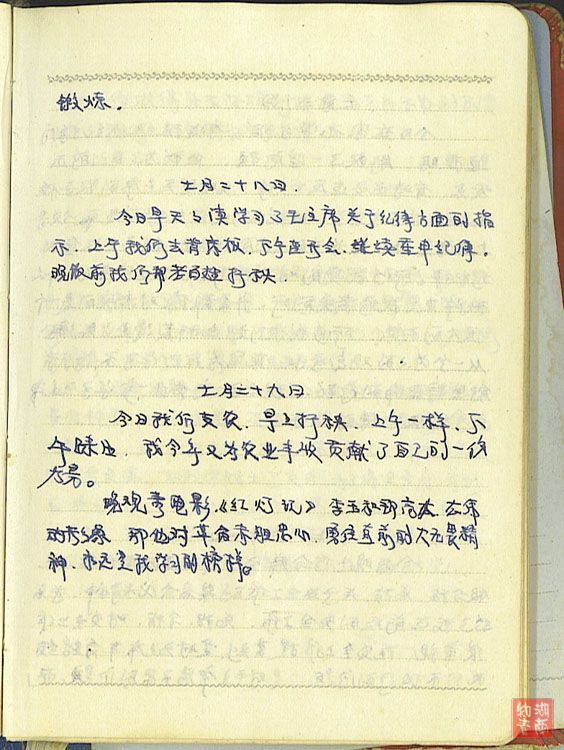 锻炼。
七月二十八日.
今日早天々读学习了毛主席关于纪律方面的指
示. 上午我们去背床板. 下午连开会. 继续整中纪律.
晚饭前我们帮老百姓打秧.
七月二十九日
今日我们支农. 早上打秧. 上午一样. 下
午 我今年又为农业丰收贡献了自己的一份
力量。
晚观看电影《红灯记》 李玉和那高大
的形象 那他对革命赤胆忠心 勇往直前的大无畏精
神. 永远是我学习的榜样。